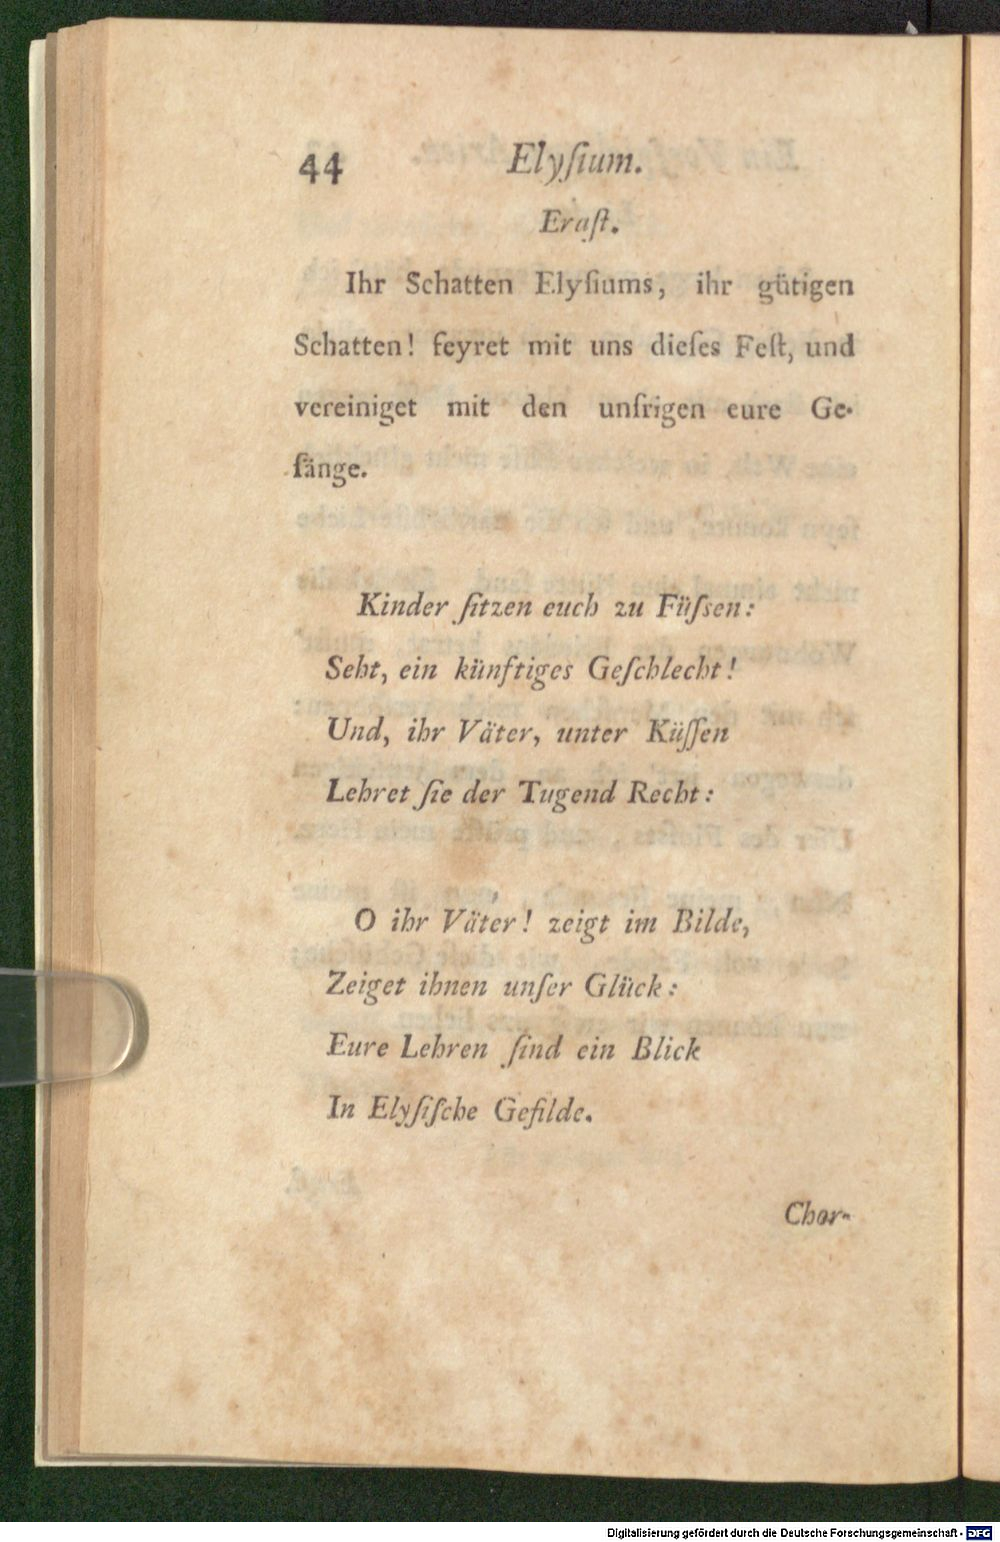 44 Elyſium.
Eraſt.
Ihr Schatten Elyſiums, ihr gütigen
Schatten! feyret mit uns dieſes Feſt, und
vereiniget mit den unſrigen eure Ge-
ſänge.
Kinder ſitzen euch zu Füſsen:
Seht, ein künftiges Geſchlecht!
Und, ihr Väter, unter Küſſen
Lehret ſie der Tugend Recht:
O ihr Väter! zeigt im Bilde,
Zeiget ihnen unſer Glück:
Eure Lehren ſind ein Blick
In Elyſiſche Gefilde.
Chor-
Digitalisierung gefördert durch die Deutsche Forschungsgemeinschaft - DFG